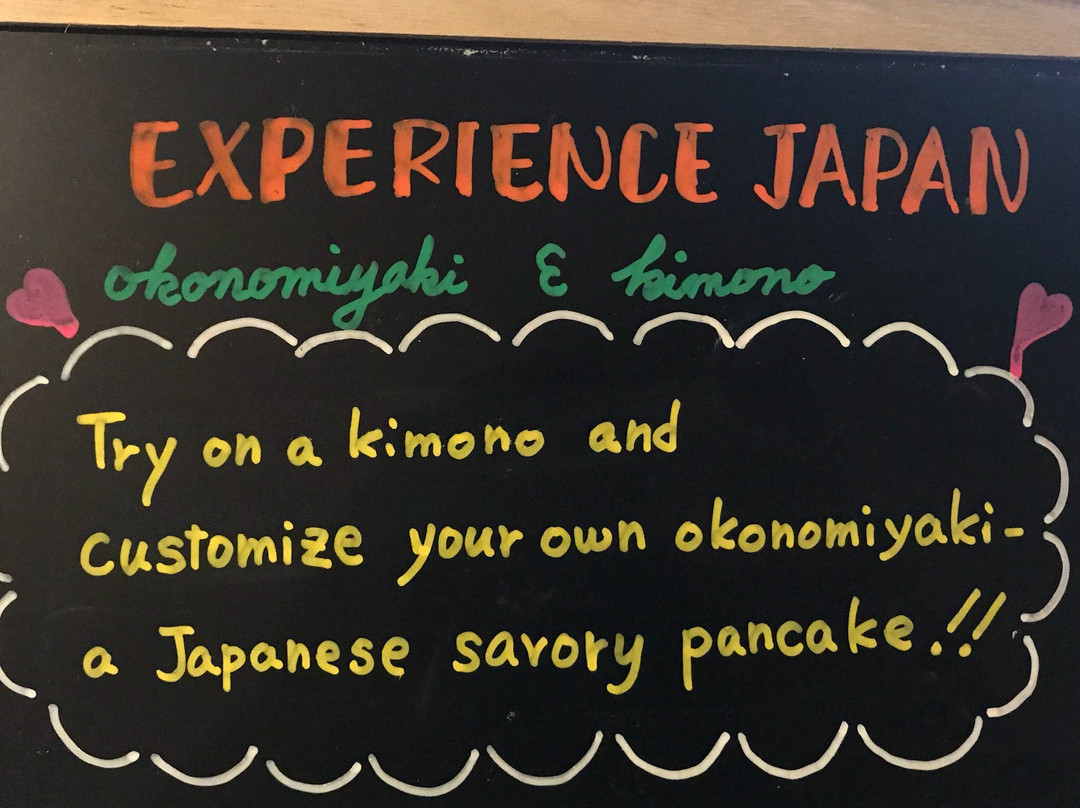 EXPERIENCE JAPAN
okonomiyaki & kimono
Try on a kimono and
customize your own okonomiyaki-
a Japanese savory pancake.!!